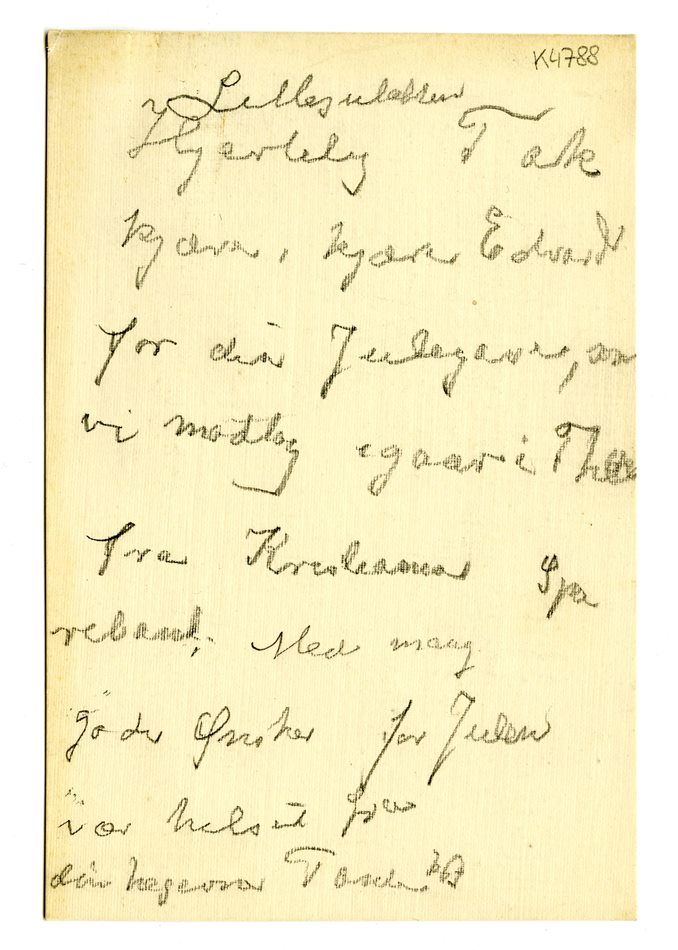 K4788
Lillejuleaften
Hjertelig Tak
kjære, kjære Edvard
for din Julegave, som
vi modtog igaar i
fra Kristiania Spa
rebank. Med mang
gode Ønsker for Julen
vær hilset fra
din hengivne Tante